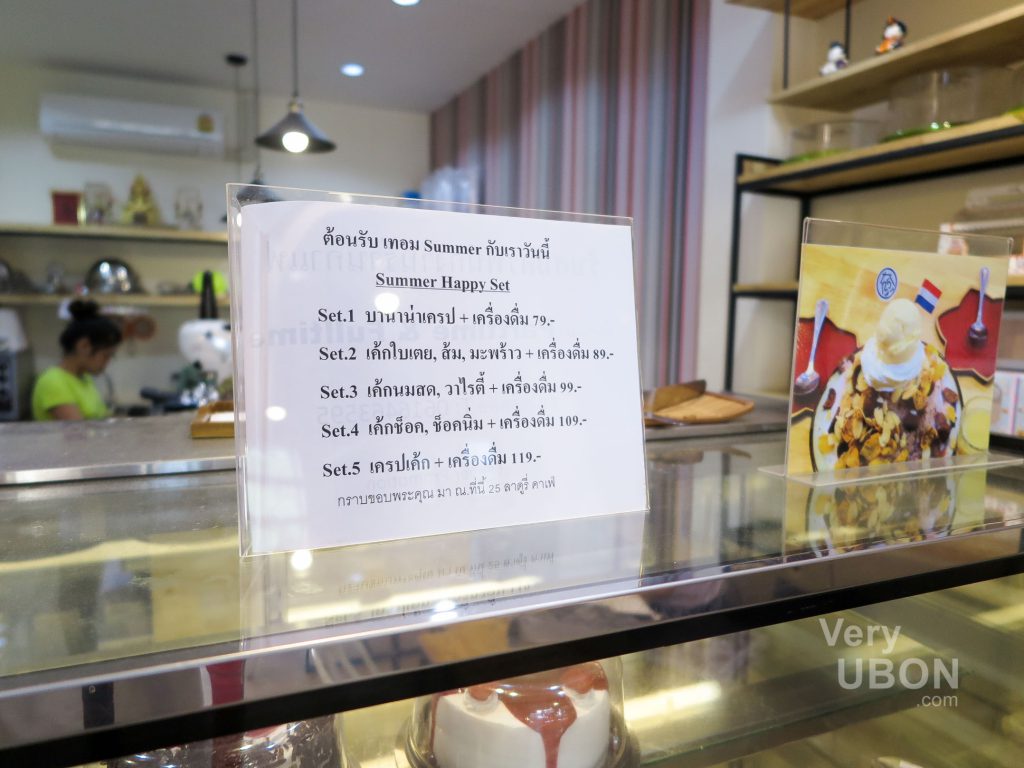 ต้อนรับ เทอม Summer กับเราวันนี้
Summer Happy Set
Set.1 บานาน่าเครป + เครื่องดื่ม 79.-
Set.2 เค้กใบเตย, ส้ม, มะพร้าว + เครื่องดื่ม 89.-
Set.3 เค้กนมสด, วาไรตี้ + เครื่องดื่ม 99.-
Set.4 เค้กช็อค, ช็อคนิ่ม + เครื่องดื่ม 109.-
Set.5 เครปเค้ก + เครื่องดื่ม 119.-
กราบขอบพระคุณ มา ณ.ที่นี้ 25 ลาดูรี่ คาเฟ่
Very
UBON
.com